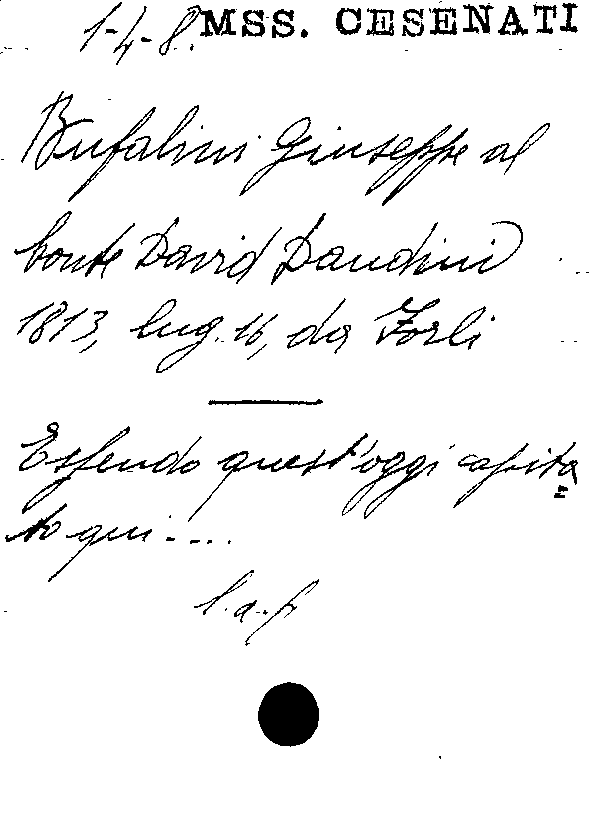 1-4-8. MSS. CESENATI
Bufalini Giuseppe al
Conte David Dandini
1813, lug. 16, da Forlì
Essendo quest'oggi capita=
to qui....
l.a.f